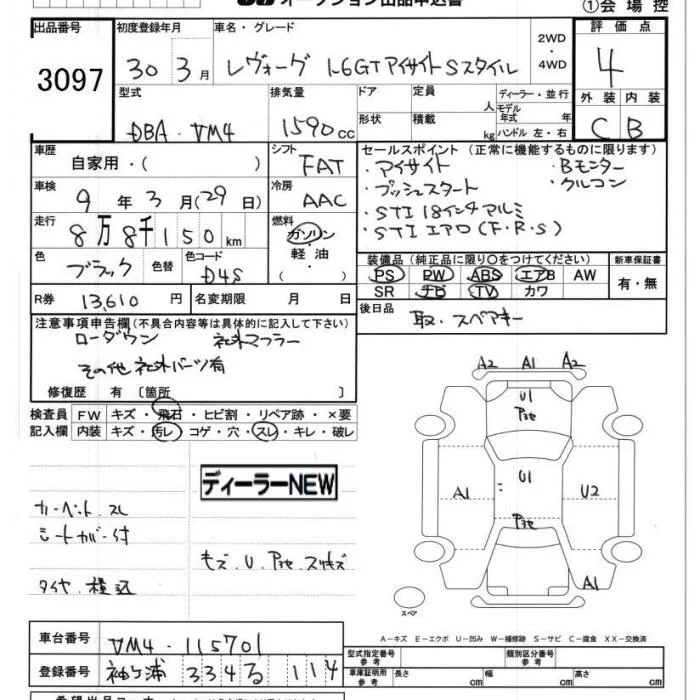 オークション出品申込書
①会場控
出品番号 初度登録年月 車名・グレード 評価点
3097 30年3月 レヴォーグ 1.6GTアイサイトSスタイル 2WD・4WD 4
型式 排気量 ドア 定員 人 ディーラー・並行 外装 内装
DBA・VM4 1590cc 形状 積載 kg モデル年式 年 ハンドル 左・右 C B
車歴 自家用・( ) シフト FAT
車検 9年3月(29日) 冷房 AAC
走行 8万8千150km 燃料 ガソリン・軽油・( )
色 ブラック 色替 色コード D4S
R券 13,610円 名変期限 月 日
セールスポイント(正常に機能するものに限ります)
・アイサイト ・Bモニター
・プッシュスタート ・クルコン
・STI 18インチアルミ
・STI エアロ(F・R・S)
装備品(純正品に限り○をつけてください) 新車保証書
PS PW ABS エアB AW 有・無
SR ナビ TV カワ
後日品 取・スペアキー
注意事項申告欄(不具合内容等は具体的に記入して下さい)
ローダウン 社外マフラー
その他社外パーツ有
修復歴 有〔箇所 〕
検査員記入欄 FW キズ・飛石・ヒビ割・リペア跡・×要
内装 キズ・汚レ・コゲ・穴・スレ・キレ・破レ
ディーラーNEW
カーペット スレ
シートカバー付
キズ、U、Pヨセ、スリキズ
タイヤ積込
A2 A1 A2
U1
Pヨセ
A1 U1 U2
Pヨセ
A1
スペア
A-キズ E-エクボ U-凹み W-補修跡 S-サビ C-腐食 XX-交換済
車台番号 VM4-115701
登録番号 袖ヶ浦 334 る 114
型式指定番号 参考 類別区分番号 参考
車庫証明用 参考 長さ cm 幅 cm 高さ cm